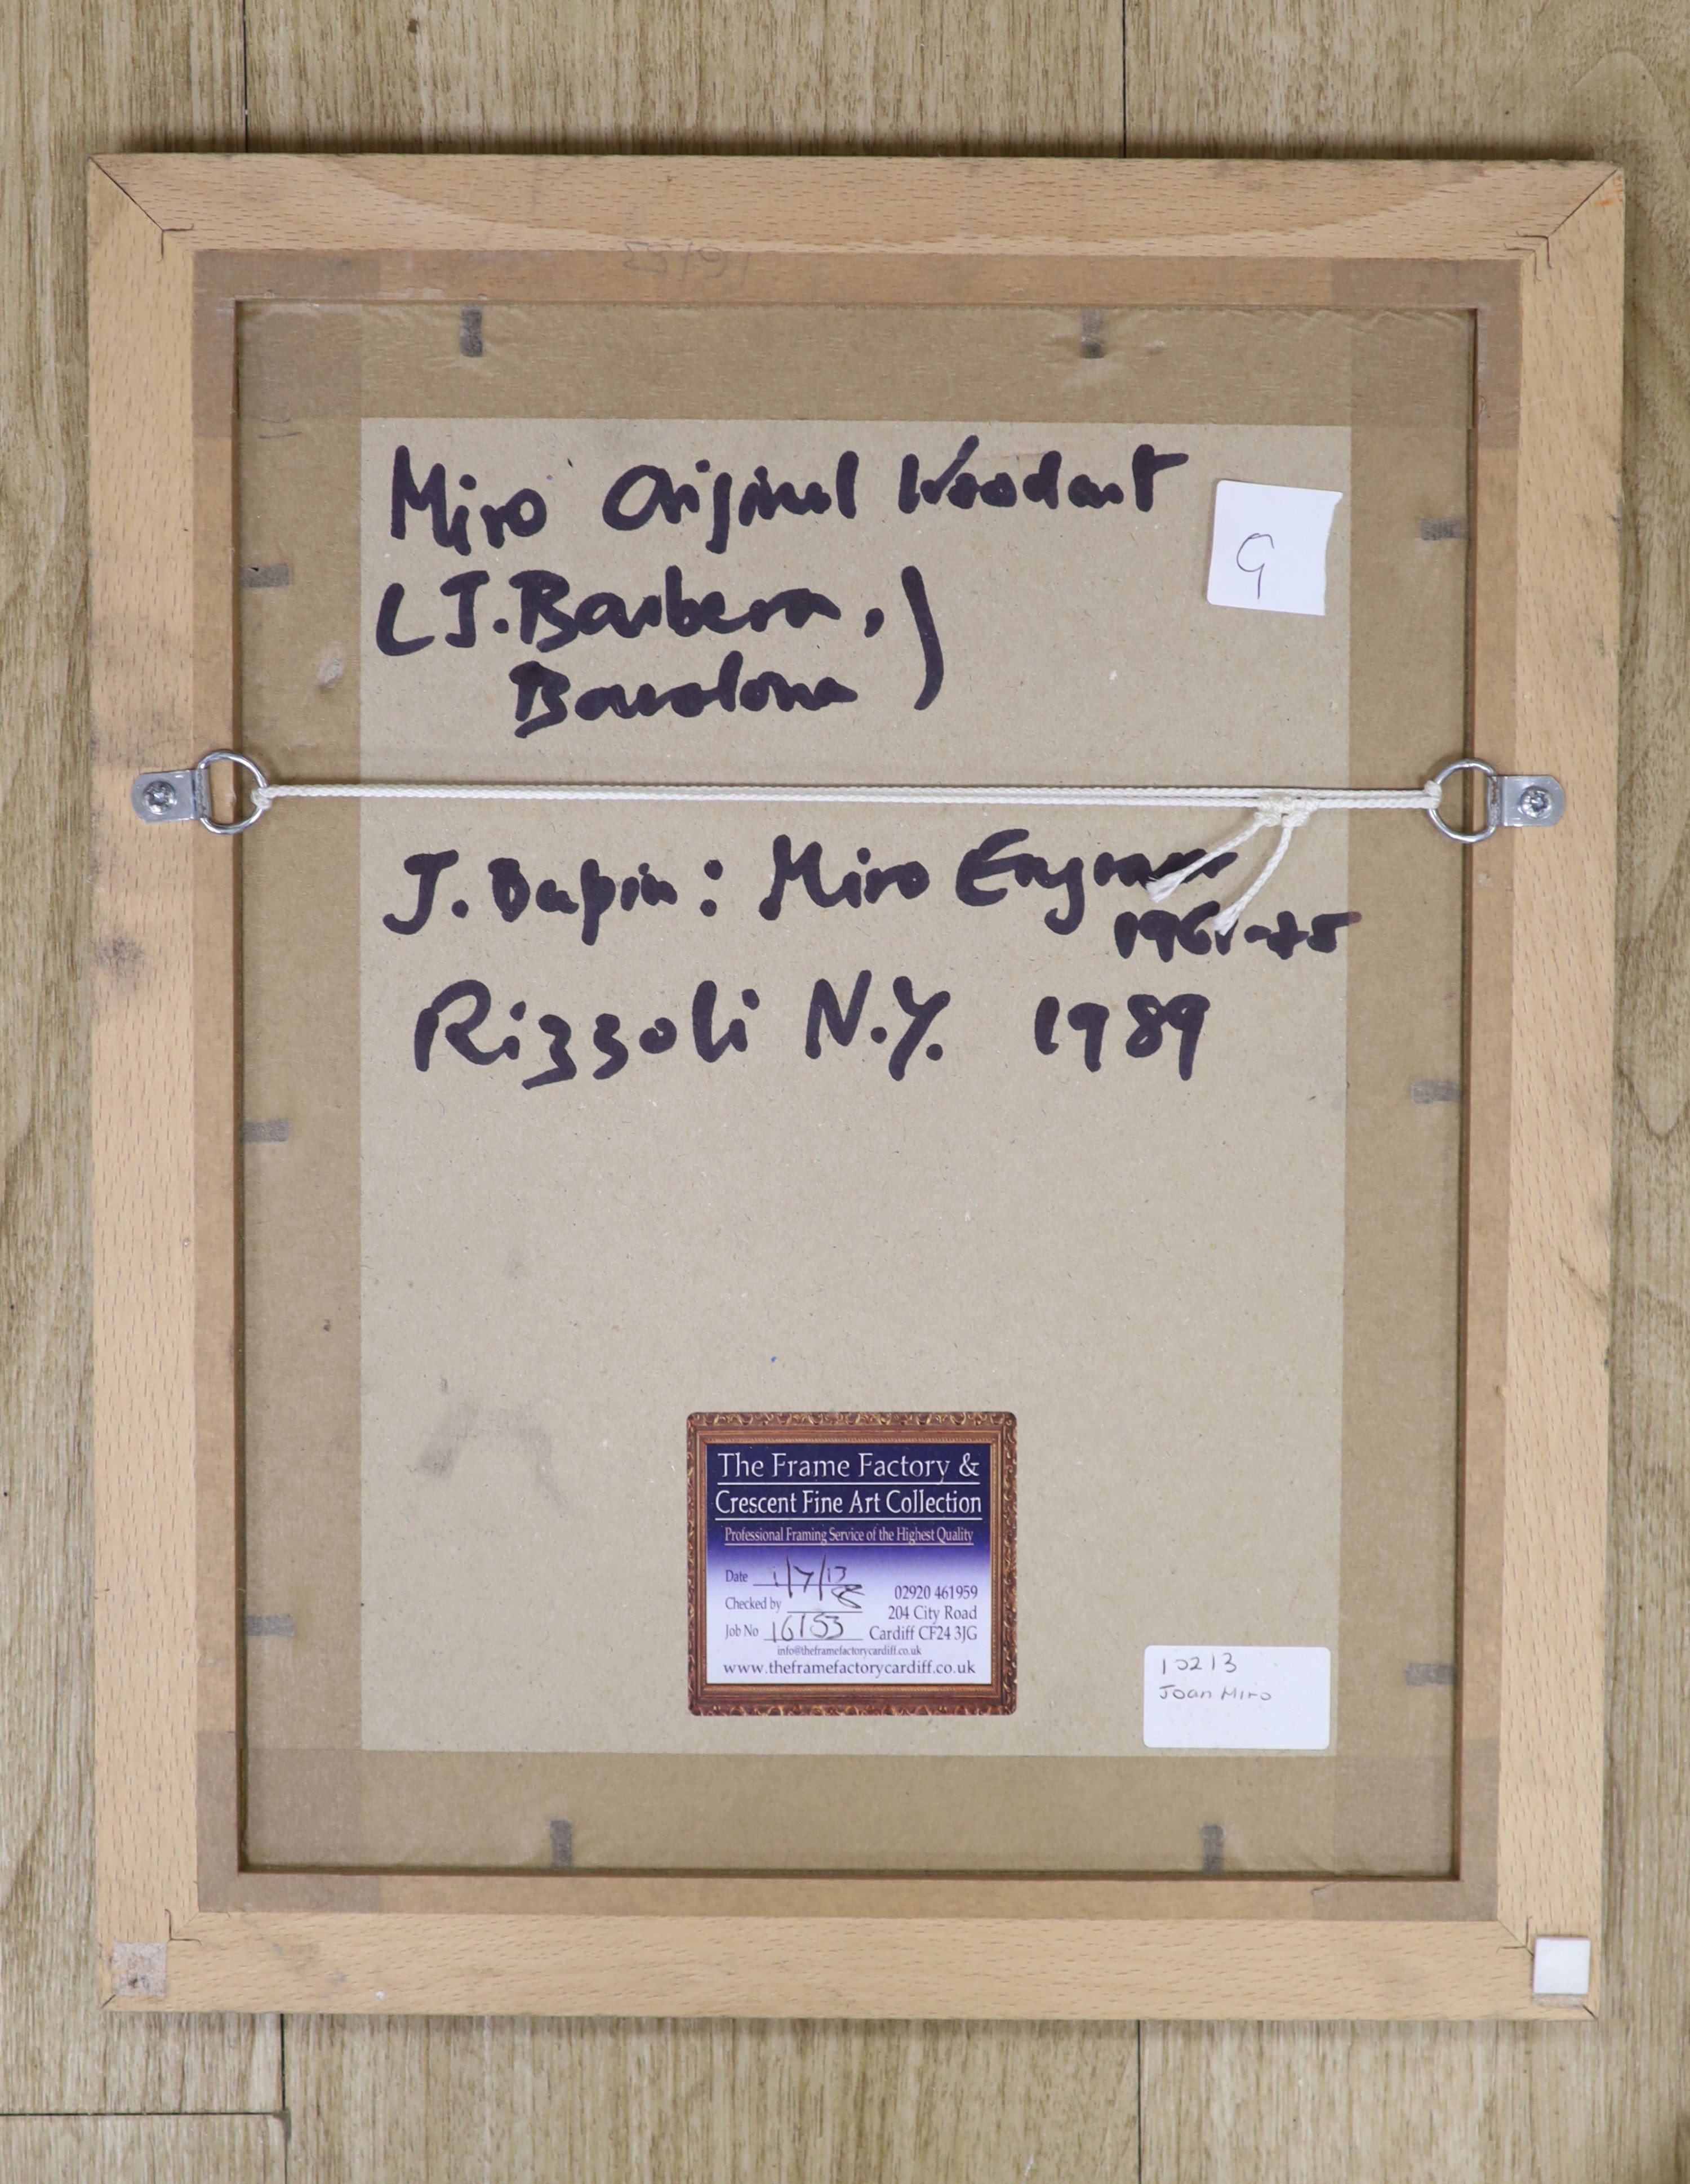 Miro Original Woodcut
(J. Barbera,)
Barcelona
9
J. Dupin: Miro Engraver
1961-75
Rizzoli N.Y. 1989
The Frame Factory &
Crescent Fine Art Collection
Professional Framing Service of the Highest Quality
Date 1/7/13
Checked by
Job No 16153
02920 461959
204 City Road
Cardiff CF24 3JG
info@theframefactorycardiff.co.uk
www.theframefactorycardiff.co.uk
10213
Joan Miro
16153